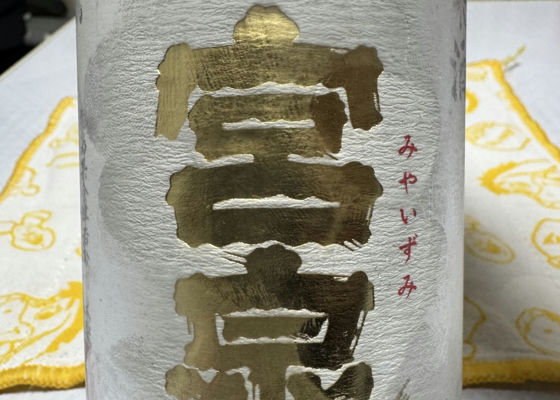 宮泉
みやいずみ